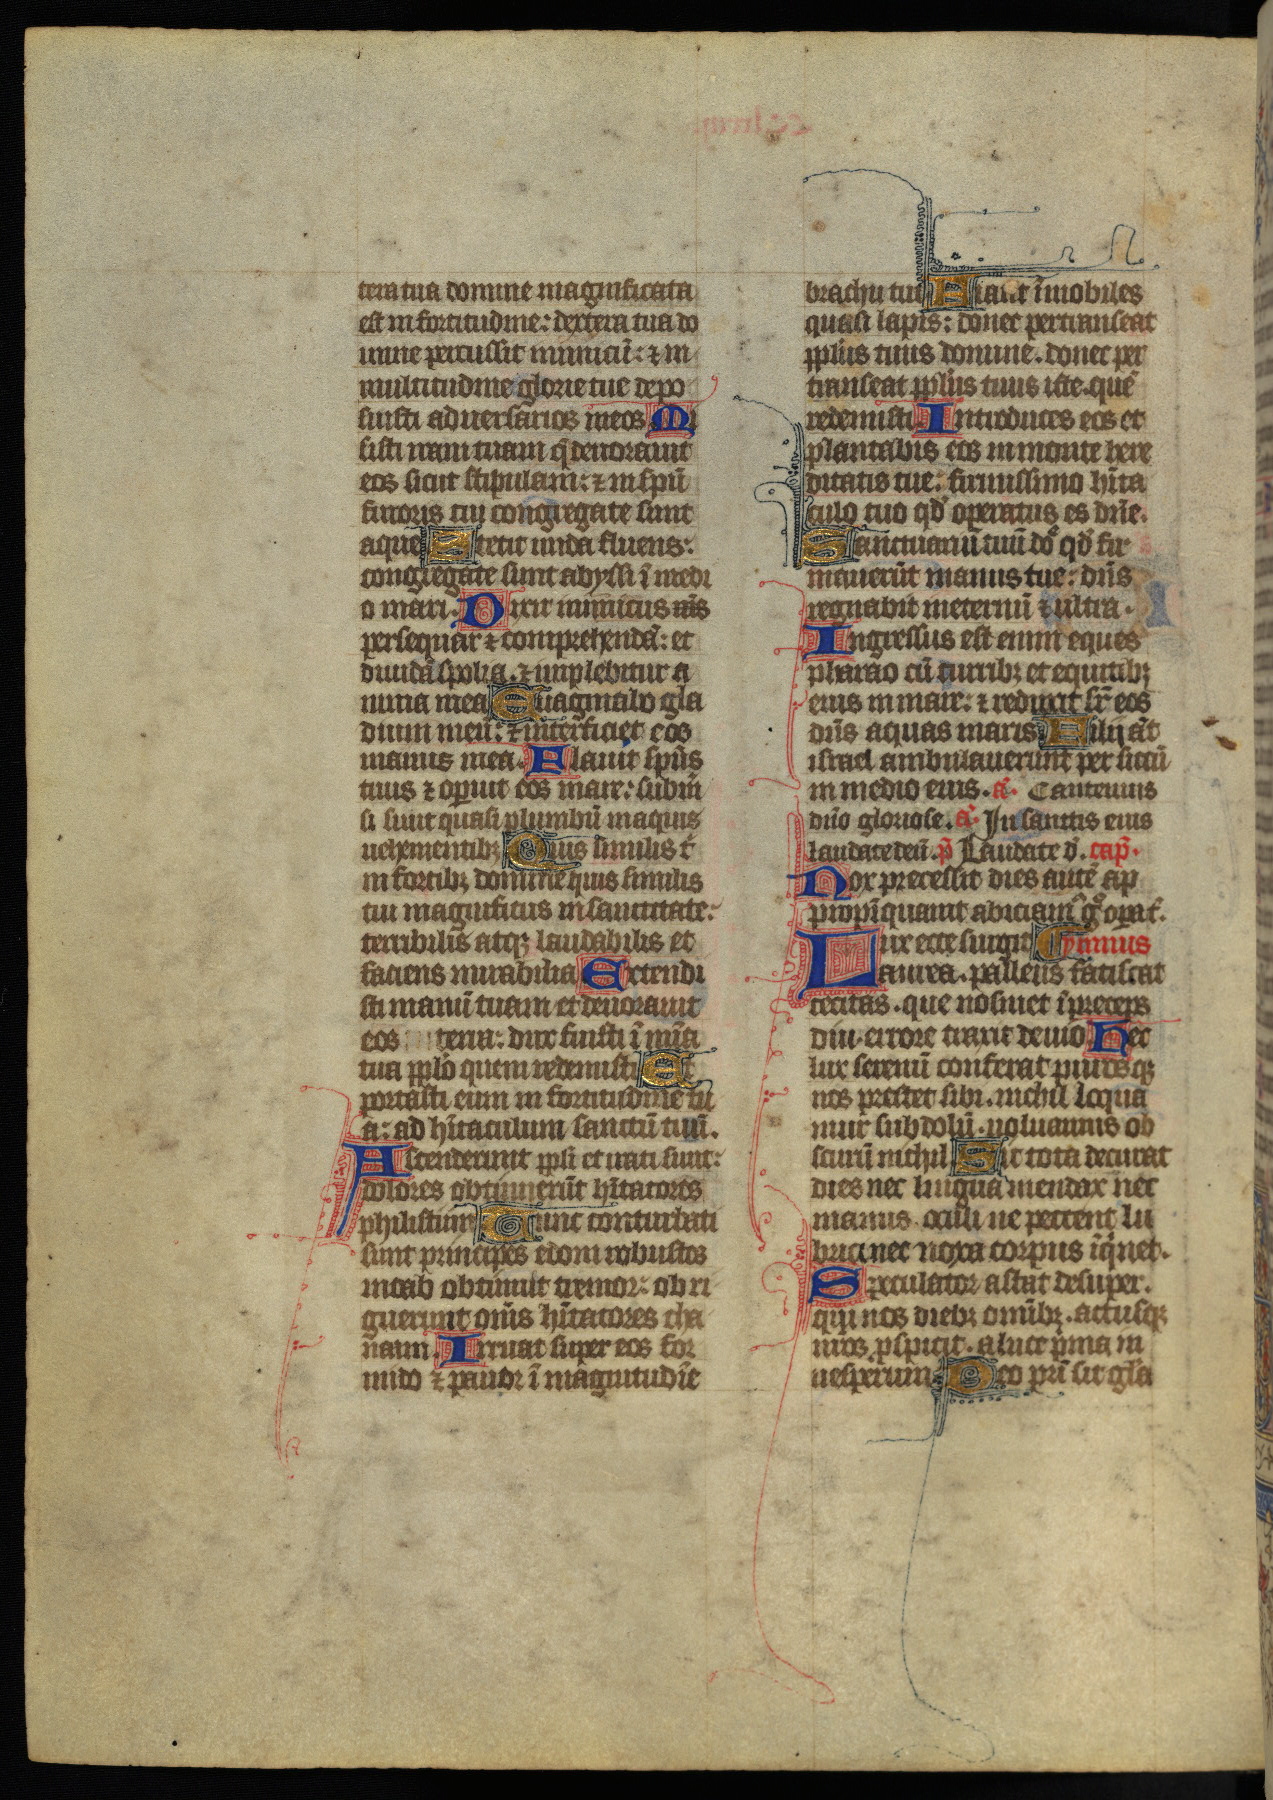 tera tua domine magnificata
est in fortitudine: dextera tua do
mine percussit inimicū: ⁊ in
multitudine glorie tue depo
suisti adversarios meos Mi
sisti iram tuam q̄ devoravit
eos sicut stipulam: ⁊ in spū
furoris tui congregate sunt
aque Stetit unda fluens:
congregate sunt abyssi ī medi
o mari. Dixit inimicus
persequar ⁊ comprehendā: et
dividā spolia. ⁊ implebitur a
nima mea Evaginabo gla
dium meū: ⁊ interficiet eos
manus mea. Flavit spūs
tuus ⁊ opuit eos mare: subm̄
si sunt quasi plumbū in aquis
vehementibꝫ Quis similis t̄
in fortibꝫ domine quis similis
tui magnificus in sanctitate:
terribilis atqꝫ laudabilis et
faciens mirabilia Extendi
sti manū tuam et devoravit
eos terra: dux fuisti ī mīa
tua pplo quem redemisti Et
portasti eum in fortitudine tu
a: ad hītaculum sanctū tuū.
Ascenderunt ppli et irati sunt:
dolores obtinuerūt hītatores
philistiim Tunc conturbati
sunt principes edom robustos
moab obtinuit tremor: obri
guerunt om̄s hītatores cha
naan. Irruat super eos for
mido ⁊ pavor ī magnitudīe
brachii tui Fiant īmobiles
quasi lapis: donec pertranseat
pplūs tuus domine. donec per
transeat pplūs tuus iste. quē
redemisti Introduces eos et
plantabis eos in monte here
ditatis tue: firmissimo hīta
culo tuo qd̄ operatus es dn̄e.
Sanctuariū tuū dō qd̄ fir
maverūt manus tue: dn̄s
regnabit in eternū ⁊ ultra.
Ingressus est enim eques
pharao cū curribꝫ et equitibꝫ
eius in mare: ⁊ reduxit sr̄ eos
dn̄s aquas maris Filii āt
israel ambulaverunt per siccū
in medio eius. ā. Cantemus
dn̄o gloriose. ā. In sanctis eius
laudate deū. p̄ Laudate d. cap̄.
Nox precessit dies autē ap
propīquavit abiciam̄ g̊ opa t̄.
Lux ecce surgit Ymnus
aurea. pallens fatiscat
cecitas. que nosmet ī preceps
diu. errore traxit devio Hec
lux serenū conferat purosqꝫ
nos prestet sibi. nichil loqua
mur subdolū. voluamus ob
scurū nichil Sic tota decurrat
dies nec lingua mendax nec
manus. oculi ve peccent lu
brici nec noxa corpus īq̄net.
Speculator astat desuper.
qui nos diebꝫ omībꝫ. actusqꝫ
nr̄os pspicit. a luce p̄ma in
vesperum Deo pr̄i sit glā